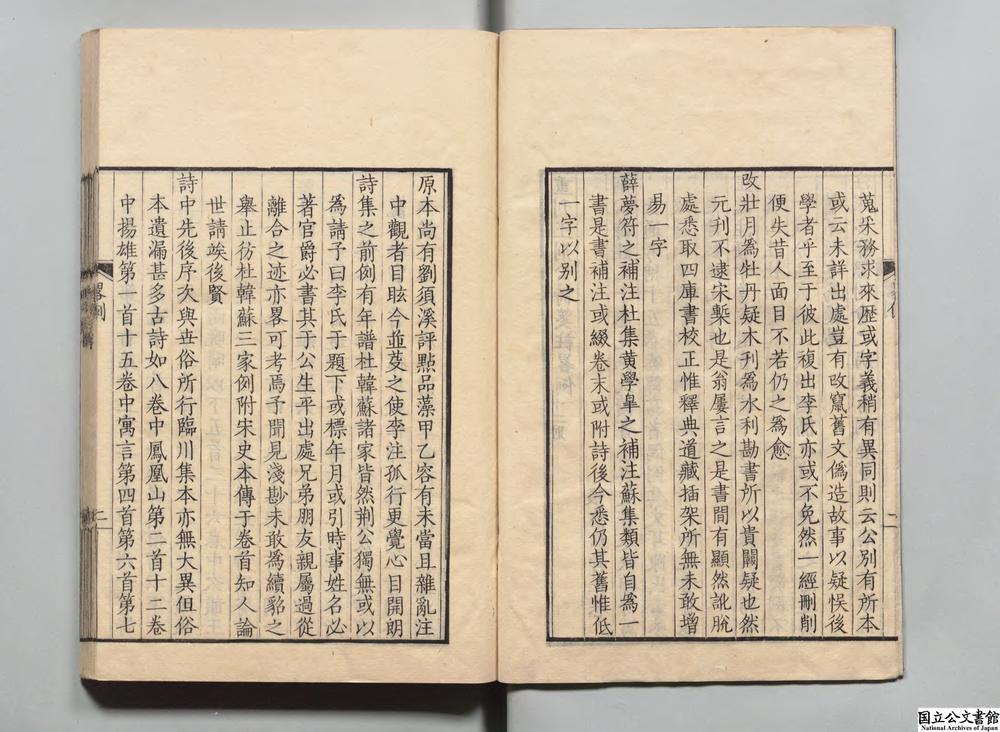 蒐采務求來歷或字義稍有異同則云公別有所本
或云未詳出處豈有改竄舊文僞造故事以疑悮後
學者乎至于彼此複出李氏亦或不免然一經刪削
便失昔人面目不若仍之為愈
改壯月為牡丹疑木刋為水利勘書所以貴闕疑也然
元刋不逮宋槧也是翁屢言之是書間有顯然訛脫
處悉取四庫書校正惟釋典道藏插架所無未敢增
易一字
薛夢符之補注杜集黃學皐之補注蘇集類皆自為一
書是書補注或綴卷末或附詩後今悉仍其舊惟低
一字以别之
二
原本尚有劉須溪評點品藻甲乙容有未當且雜亂注
中觀者目眩今並芟之使李注孤行更覺心目開朗
詩集之前例有年譜杜韓蘇諸家皆然荆公獨無或以
為請予曰李氏于題下或標年月或引時事姓名必
著官爵必書其于公生平出處兄弟朋友親屬過從
離合之迹亦畧可考焉予聞見淺尠未敢為續貂之
舉止彷杜韓蘇三家例附宋史本傳于卷首知人論
世請竢後賢
詩中先後序次與世俗所行臨川集本亦無大異但俗
本遺漏甚多古詩如八卷中鳳凰山第二首十二卷
中揚雄第一首十五卷中寓言第四首第六首第七
畧例
二
国立公文書館
National Archives of Japan